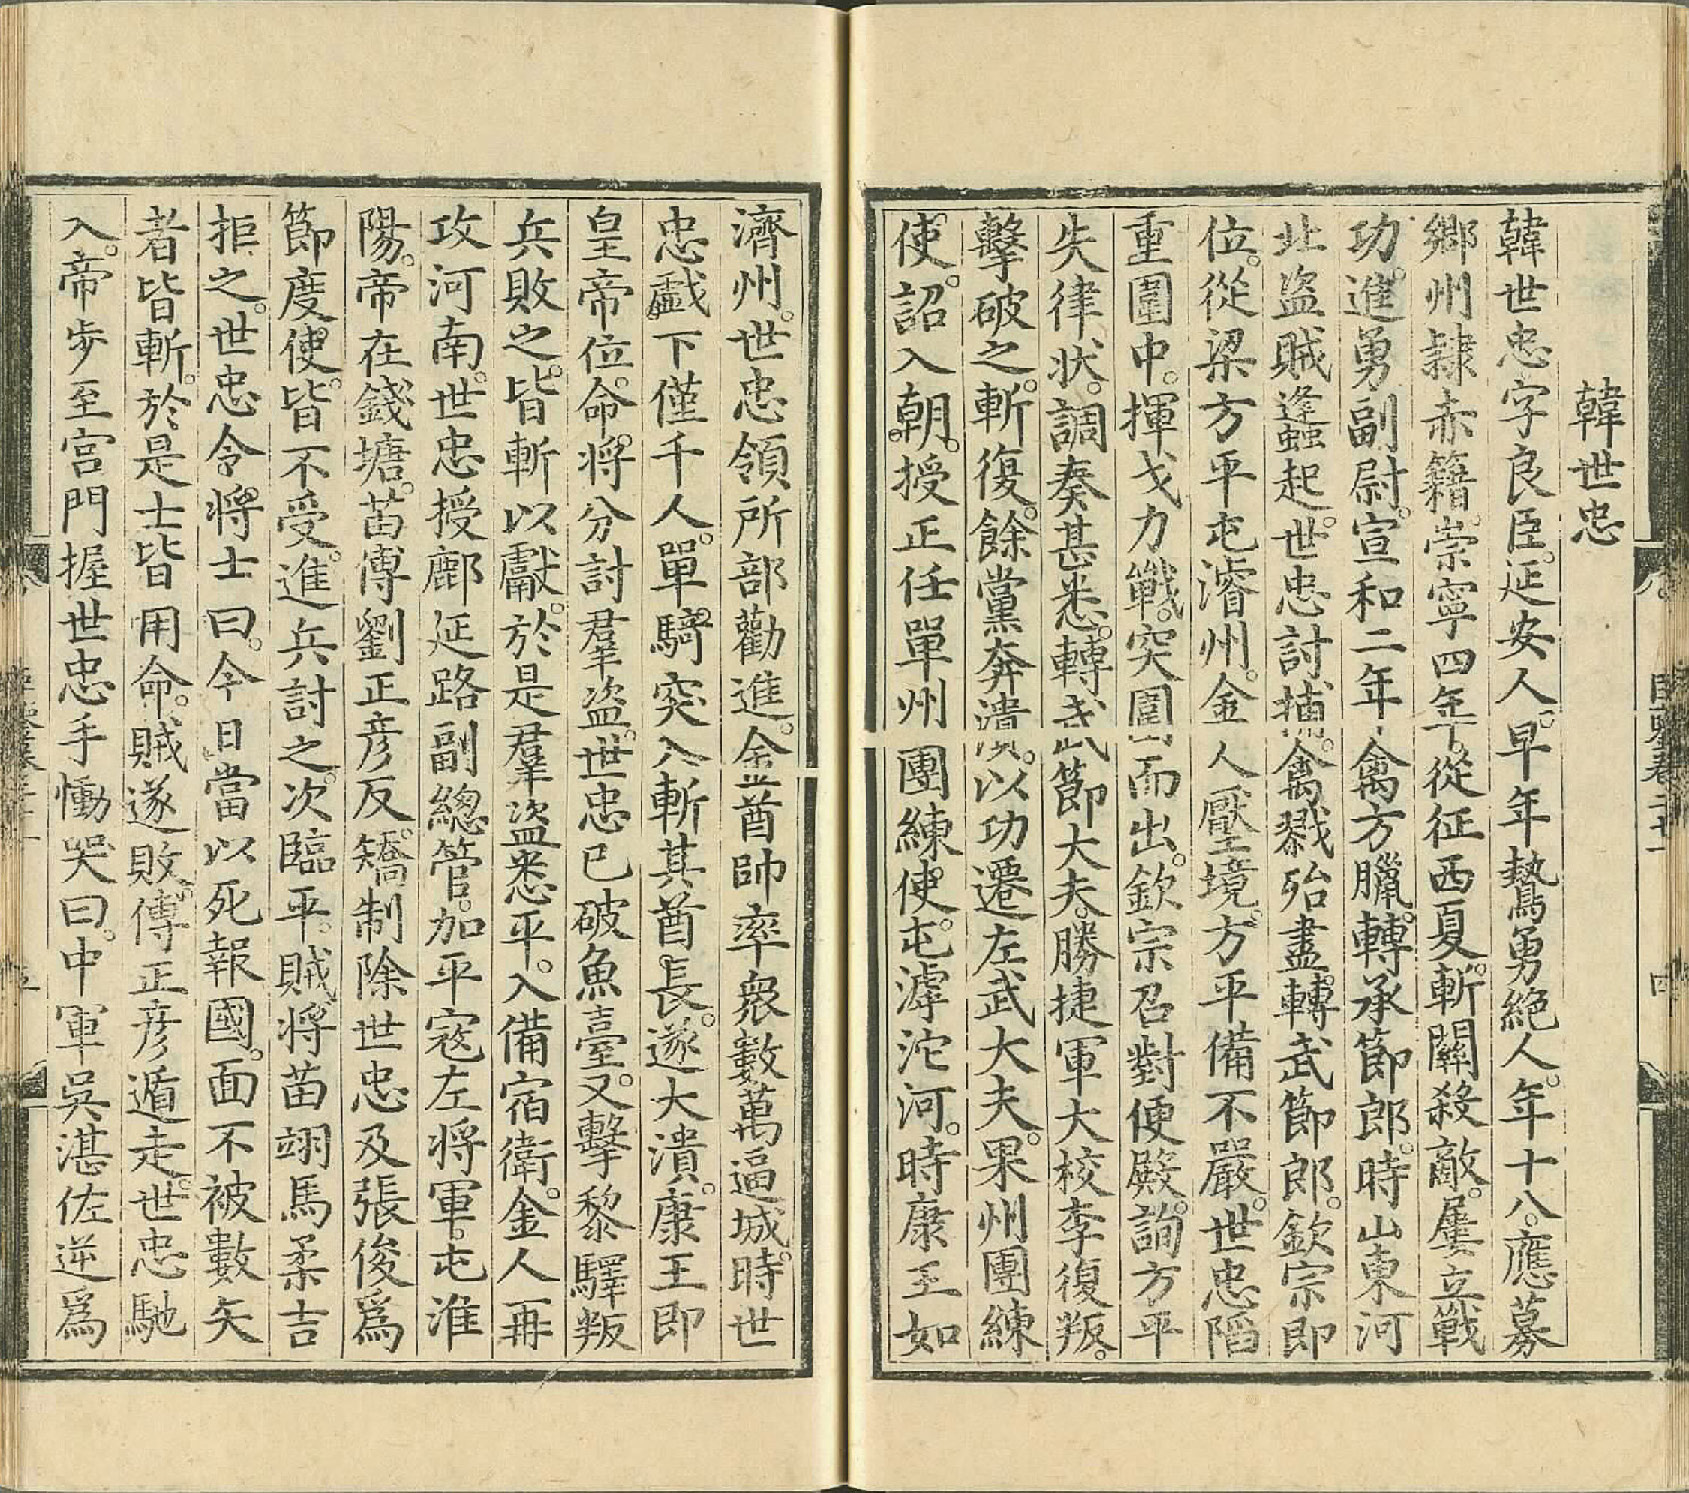 韓世忠
韓世忠字良臣。延安人。早年鷙勇絕人。年十八。應募
鄉州隸赤籍。崇寧四年。從征西夏。斬關殺敵。屢立戰
功。進勇副尉。宣和二年。禽方臘。轉承節郎。時山東河
北盜賊逢蟲起。世忠討捕禽戮殆盡。轉武節郎。欽宗即
位。從梁方平屯濬州。金人壓境。方平備不嚴。世忠陷
重圍中。揮戈力戰。突圍而出。欽宗召對便殿。詢方平
失律狀。調奏甚悉。轉武節大夫。勝捷軍大校李復叛。
擊破之。斬復。餘黨奔潰。以功遷左武大夫。果州團練
使。詔入朝。授正任單州團練使。屯滹沱河。時康王如
濟州。世忠領所部勸進。金酋帥率眾數萬逼城。時世
忠戲下僅千人。單騎突入斬其酋長。遂大潰。康王即
皇帝位。命將分討羣盜。世忠已破魚臺。又擊黎驛叛
兵敗之。皆斬以獻。於是羣盜悉平。入備宿衛。金人再
攻河南。世忠授鄜延路副總管。加平寇左將軍。屯淮
陽。帝在錢塘。苗傅劉正彥反。矯制除世忠及張俊爲
節度使。皆不受。進兵討之。次臨平。賊將苗翊馬柔吉
拒之。世忠令將士曰。今日當以死報國。面不被數矢
者皆斬。於是士皆用命。賊遂敗。傅正彥遁走。世忠馳
入。帝步至宮門握世忠手慟哭曰。中軍吳湛佐逆爲